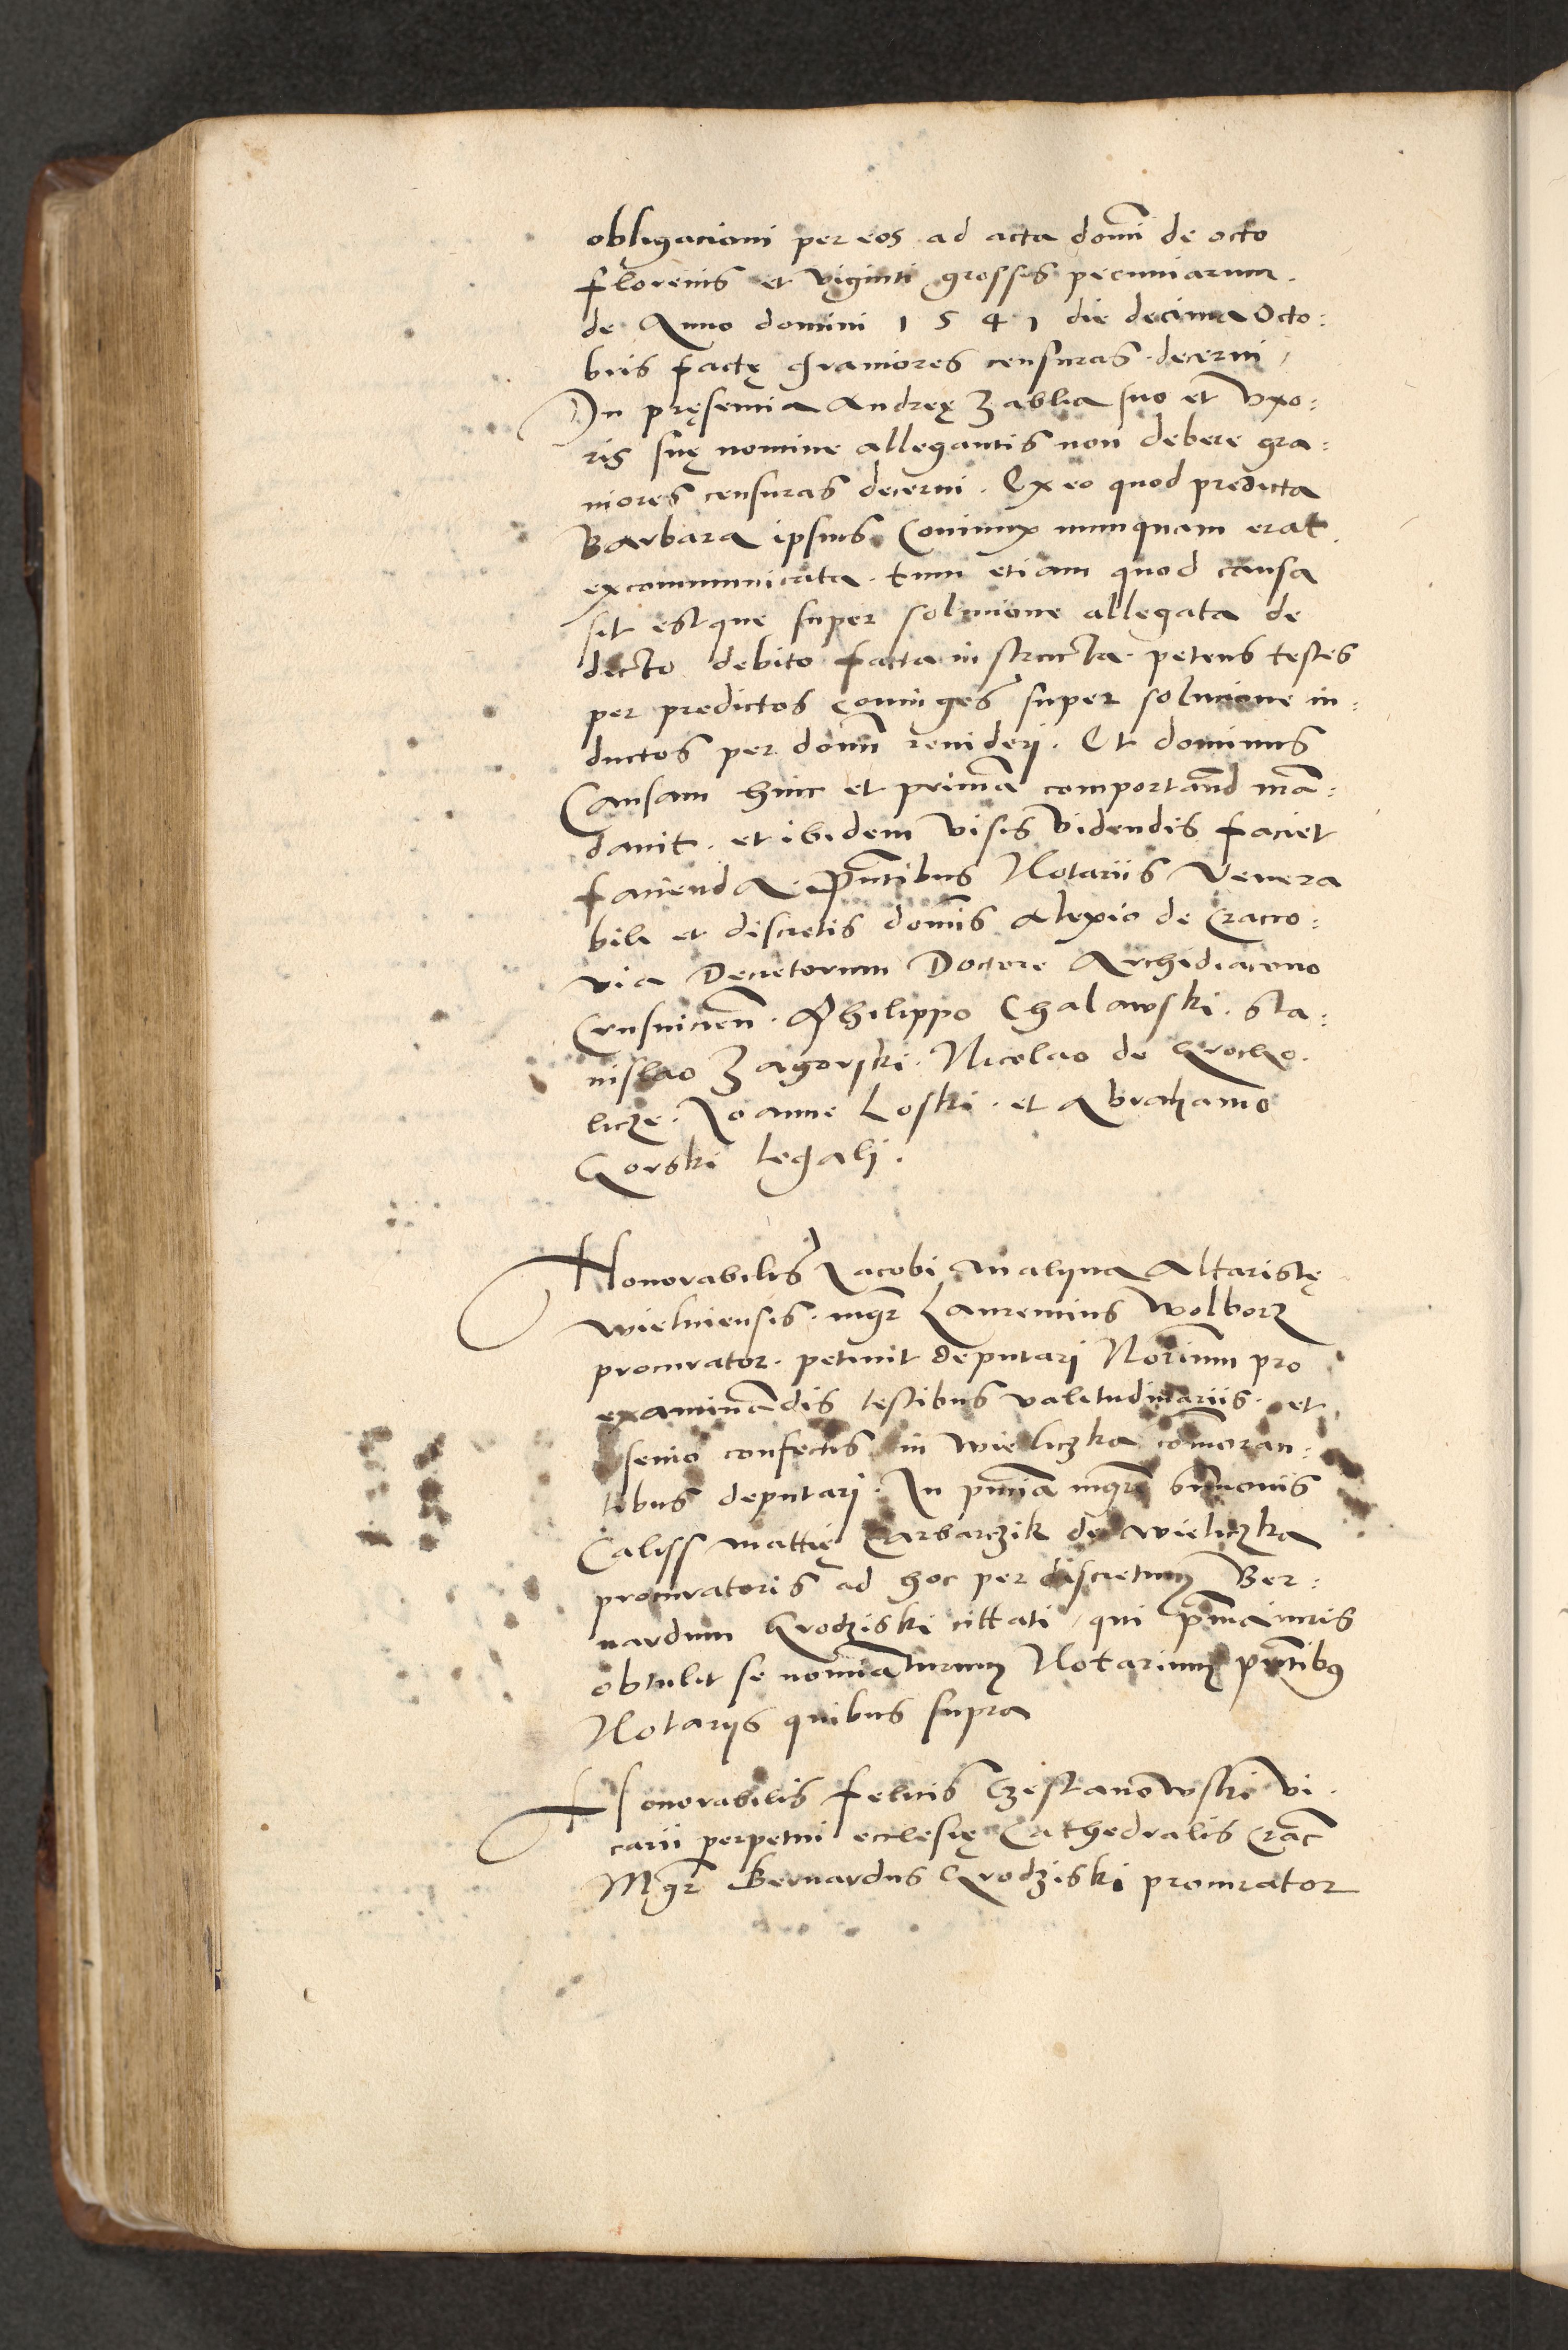 obligacioni per eos ad acta domi de octo
florenis et viginti grossis pecuniarum.
de Anno domini 1 5 4 1 die decima Octo:
bris factę graviores censuras decerni,
In pręsentia Andreę Zabka suo et uxo:
ris suę nomine allegantis non debere gra:
viores censuras decerni. Ex eo quod predicta
Barbara ipsius Coniunx nunquam erat.
excommunicata. tum etiam quod causa
sit estque super solucione allegata de
dicto debito facta instructa. petens testes
per predictos coniuges super solucione in:
ductos per domi revideri. Et dominus
Causam hinc et primā comportand mā:
davit. et ibidem visis videndis faciet
facienda. Pntibus Notariis Venera
bili et discretis domis Alexio de Craco:
via Decretorum Doctore Archidiacono
Crusvicien. Philippo Chalawski. Sta:
nislao Zagorski. Nicolao de Grocho.
licze. Joanne Loski. et Abrahamo
Gorski legalj.
Honorabilis Jacobi Malyna Altaristę
Wieliciensis. mgr Laurentius Wolborz
procurator. petivit deputari Norium pro
examinādis testibus valitudinariis. et
senio confectis in Wieliczka comoran:
tibus deputari. In pntia mgri Simonis
Caliss Mattię Carbarczik de Wieliczka
procuratoris ad hoc per discretum Ber:
nardum Grodziski cittati, qui pma iuris
obtulit se nominaturum Notarium pntibus
Notarijs quibus supra
Honorabilis felicis Czestanowski vi.
carii perpetui ecclesię Cathedralis Crac
Mgr Bernardus Grodziski procurator